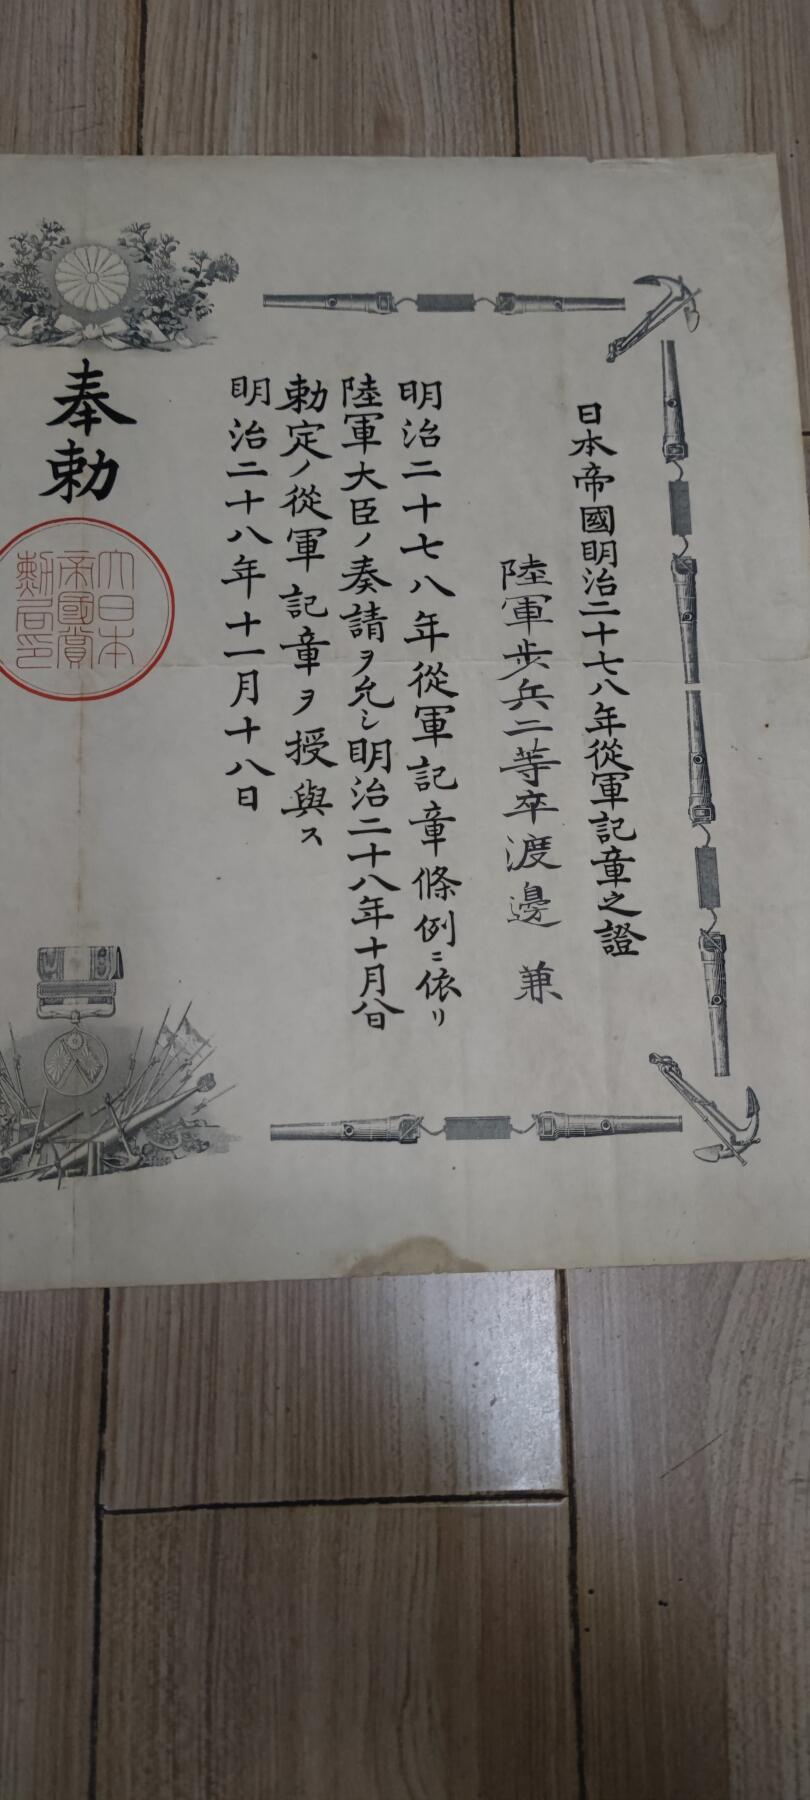 日本帝國明治二十七八年從軍記章之證
陸軍歩兵二等卒渡邊 兼
明治二十七八年從軍記章條例ニ依リ
陸軍大臣ノ奏請ヲ允シ明治二十八年十月八日
勅定ノ從軍記章ヲ授與ス
明治二十八年十一月十八日
奉勅
大日本
帝國賞
勳局印